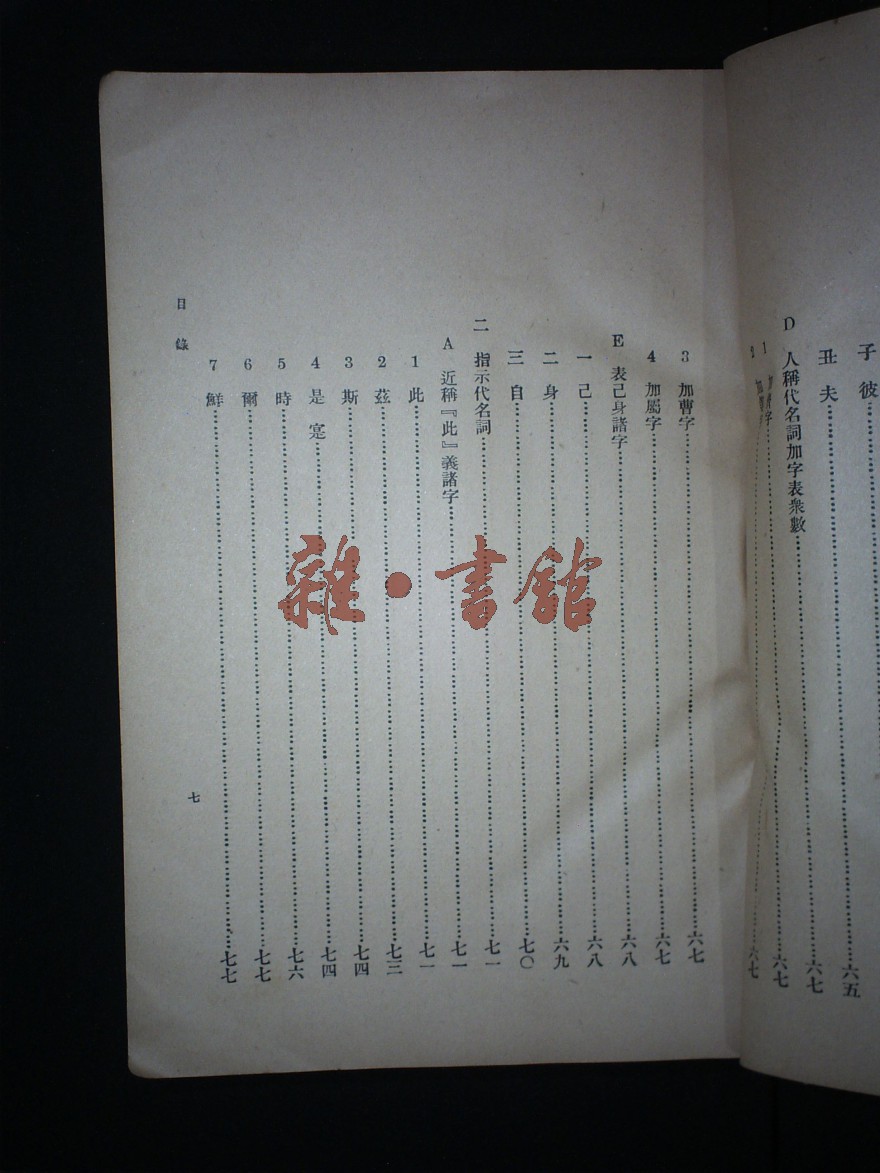 子 彼……六五
丑 夫……六七
D 人稱代名詞加字表衆數……六七
1
3 加曹字……六七
4 加屬字……六七
E 表己身諸字……六八
一 己……六八
二 身……六九
三 自……七〇
二 指示代名詞……七一
A 近稱『此』義諸字……七一
1 此……七一
2 茲……七三
3 斯……七四
4 是 寔……七四
5 時……七六
6 爾……七七
7 鮮……七七
目錄
七
雜·書館